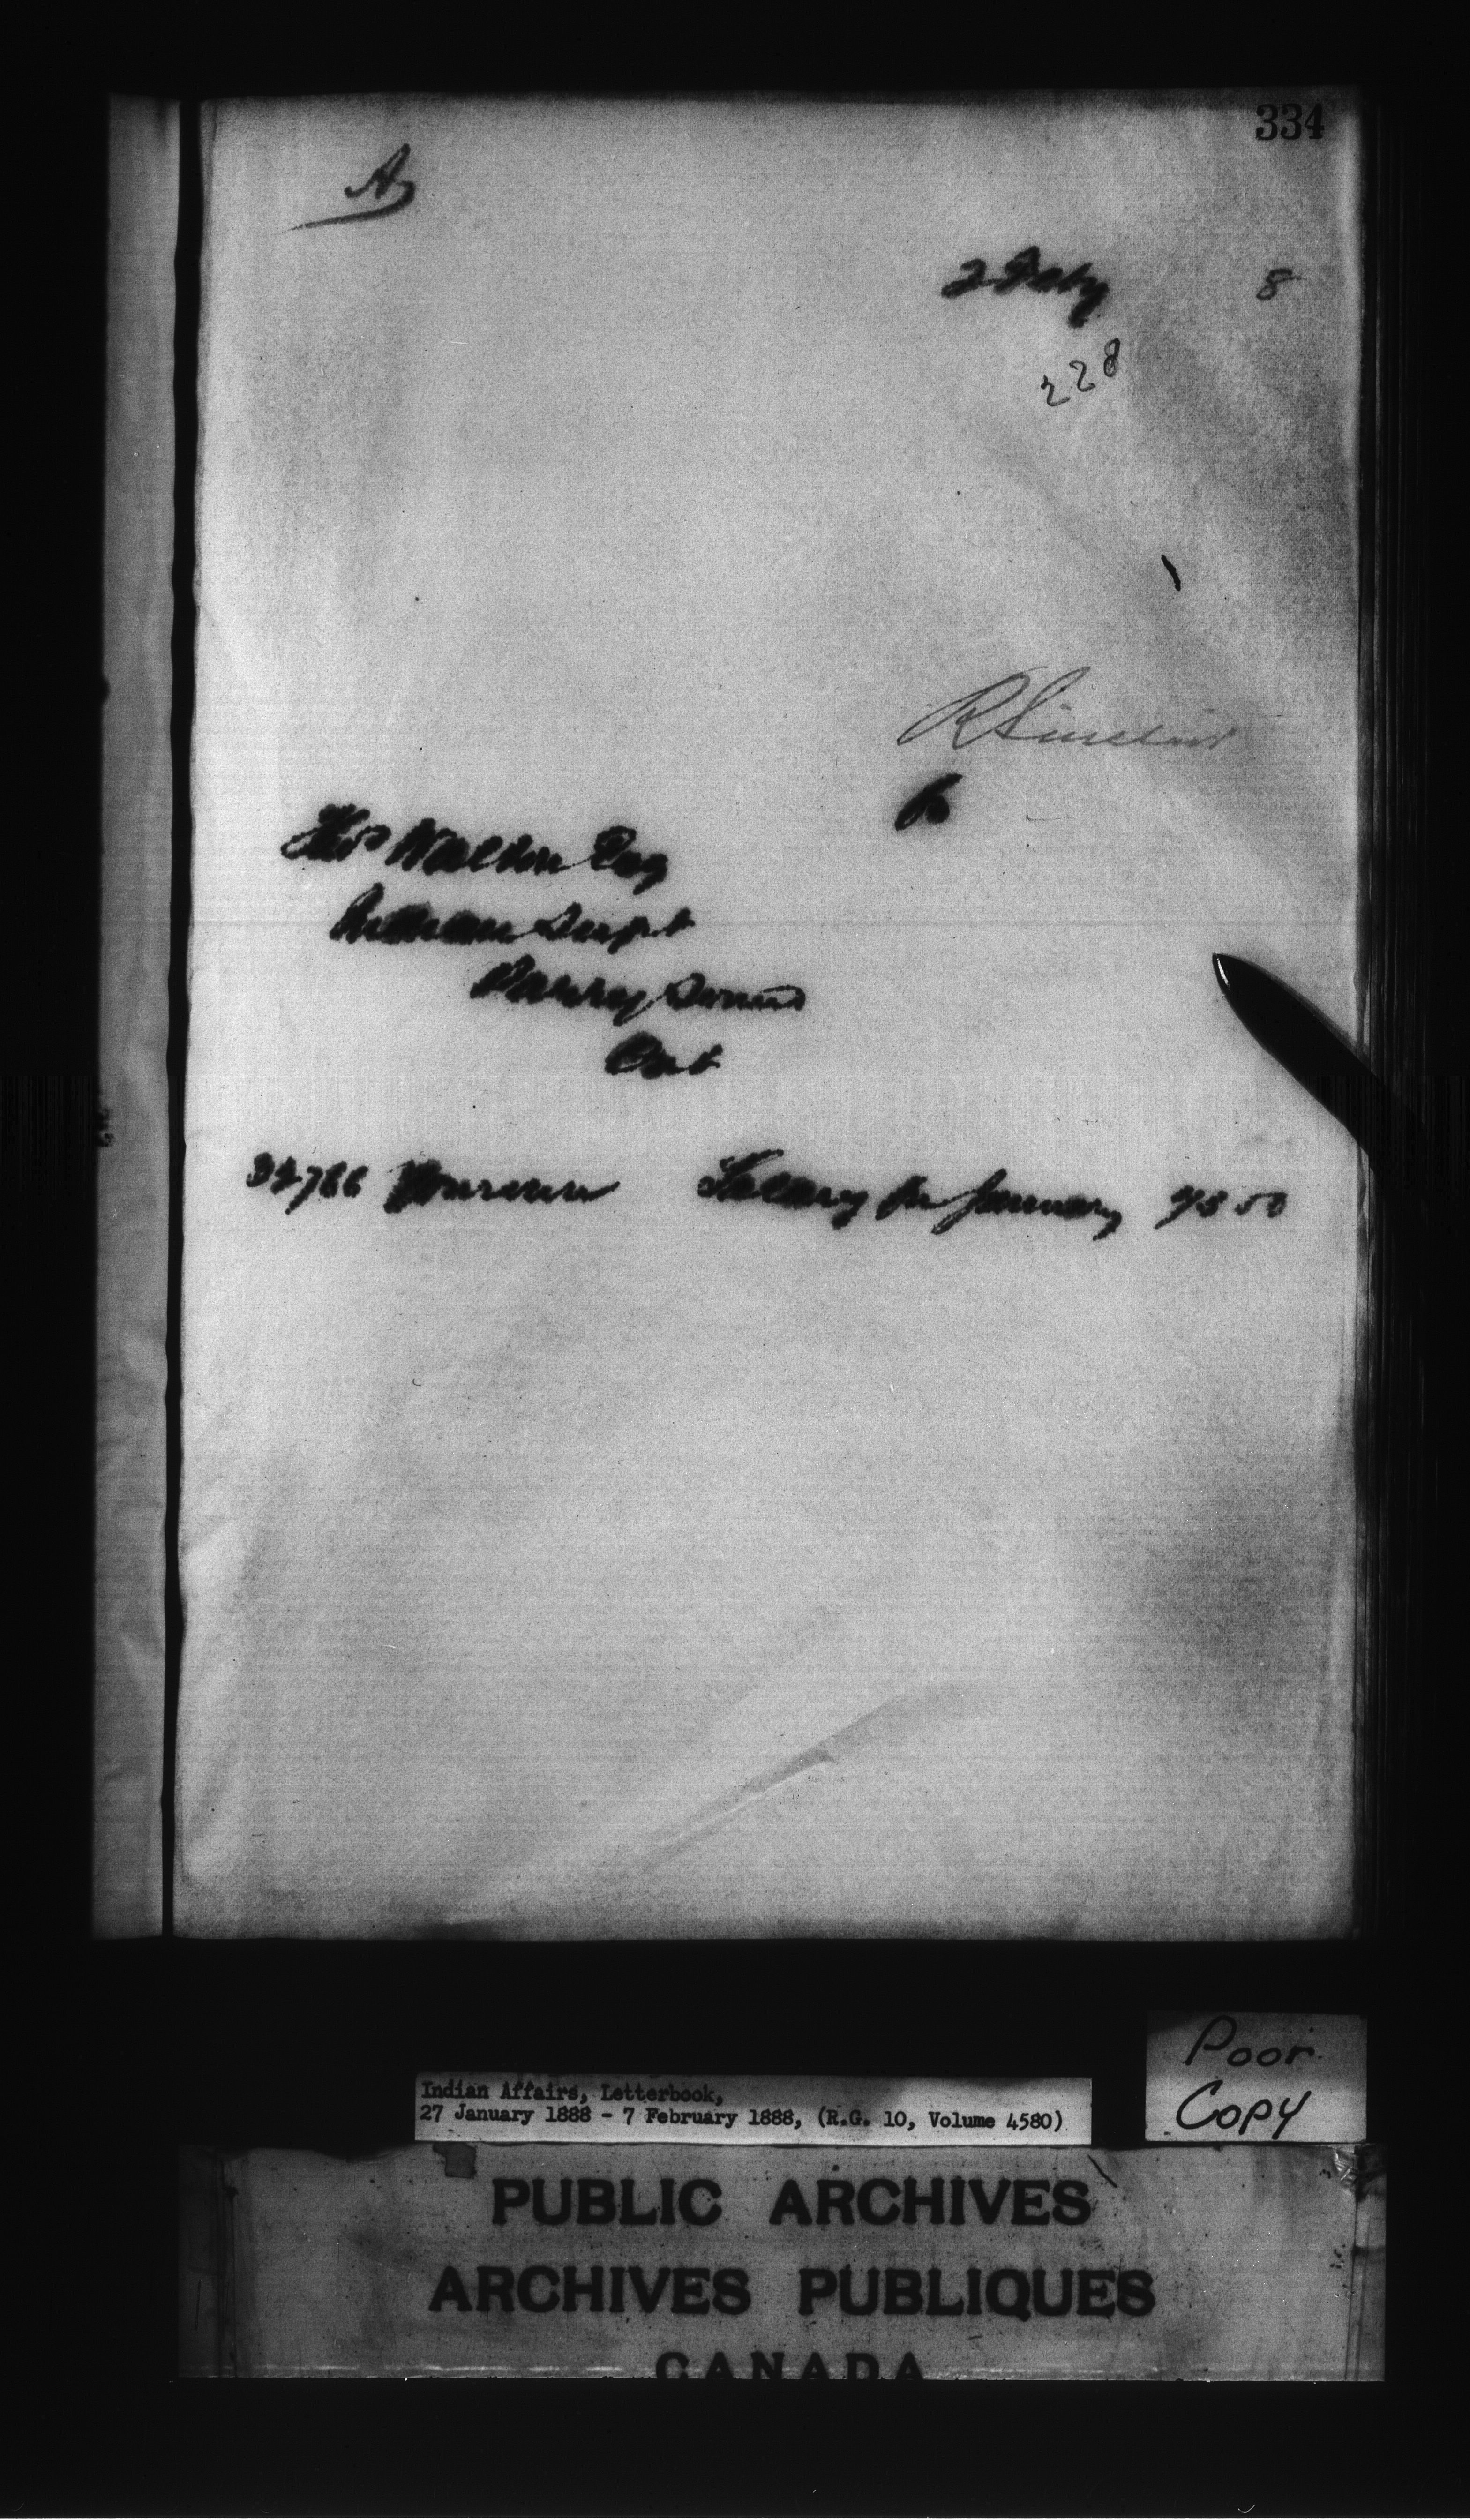 334
A
2 Feby 8
228
R Sinclair
for
Thos Walton Esq
Indian Supt
Parry Sound
Ont
Yourself Salary for January
Poor
Copy
Indian Affairs, Letterbook,
27 January 1888 - 7 February 1888, (R.G. 10, Volume 4580)
PUBLIC ARCHIVES
ARCHIVES PUBLIQUES
CANADA